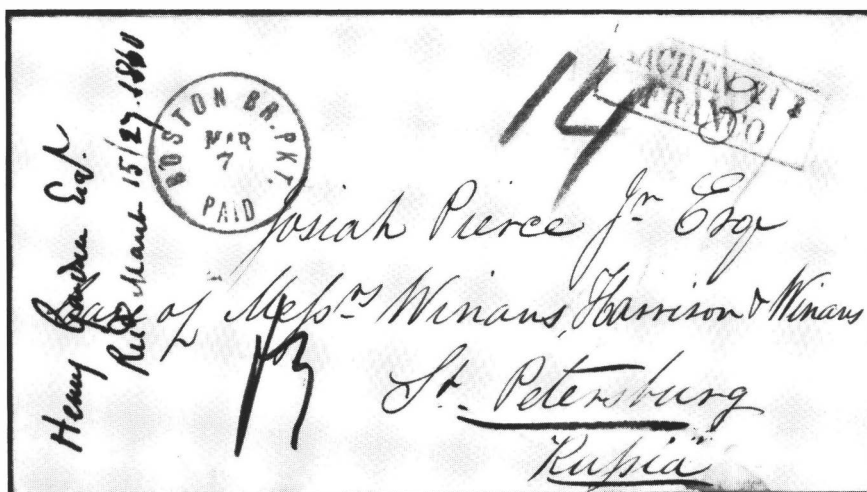 Henry Esq.
Recd March 15/27. 1860
BOSTON BR. PKT.
MAR
7
PAID
14
AACHEN
FRANCO
3
Josiah Pierce Jr Esqr
Care of Messrs Winans, Harrison & Winans
St. Petersburg
Russia